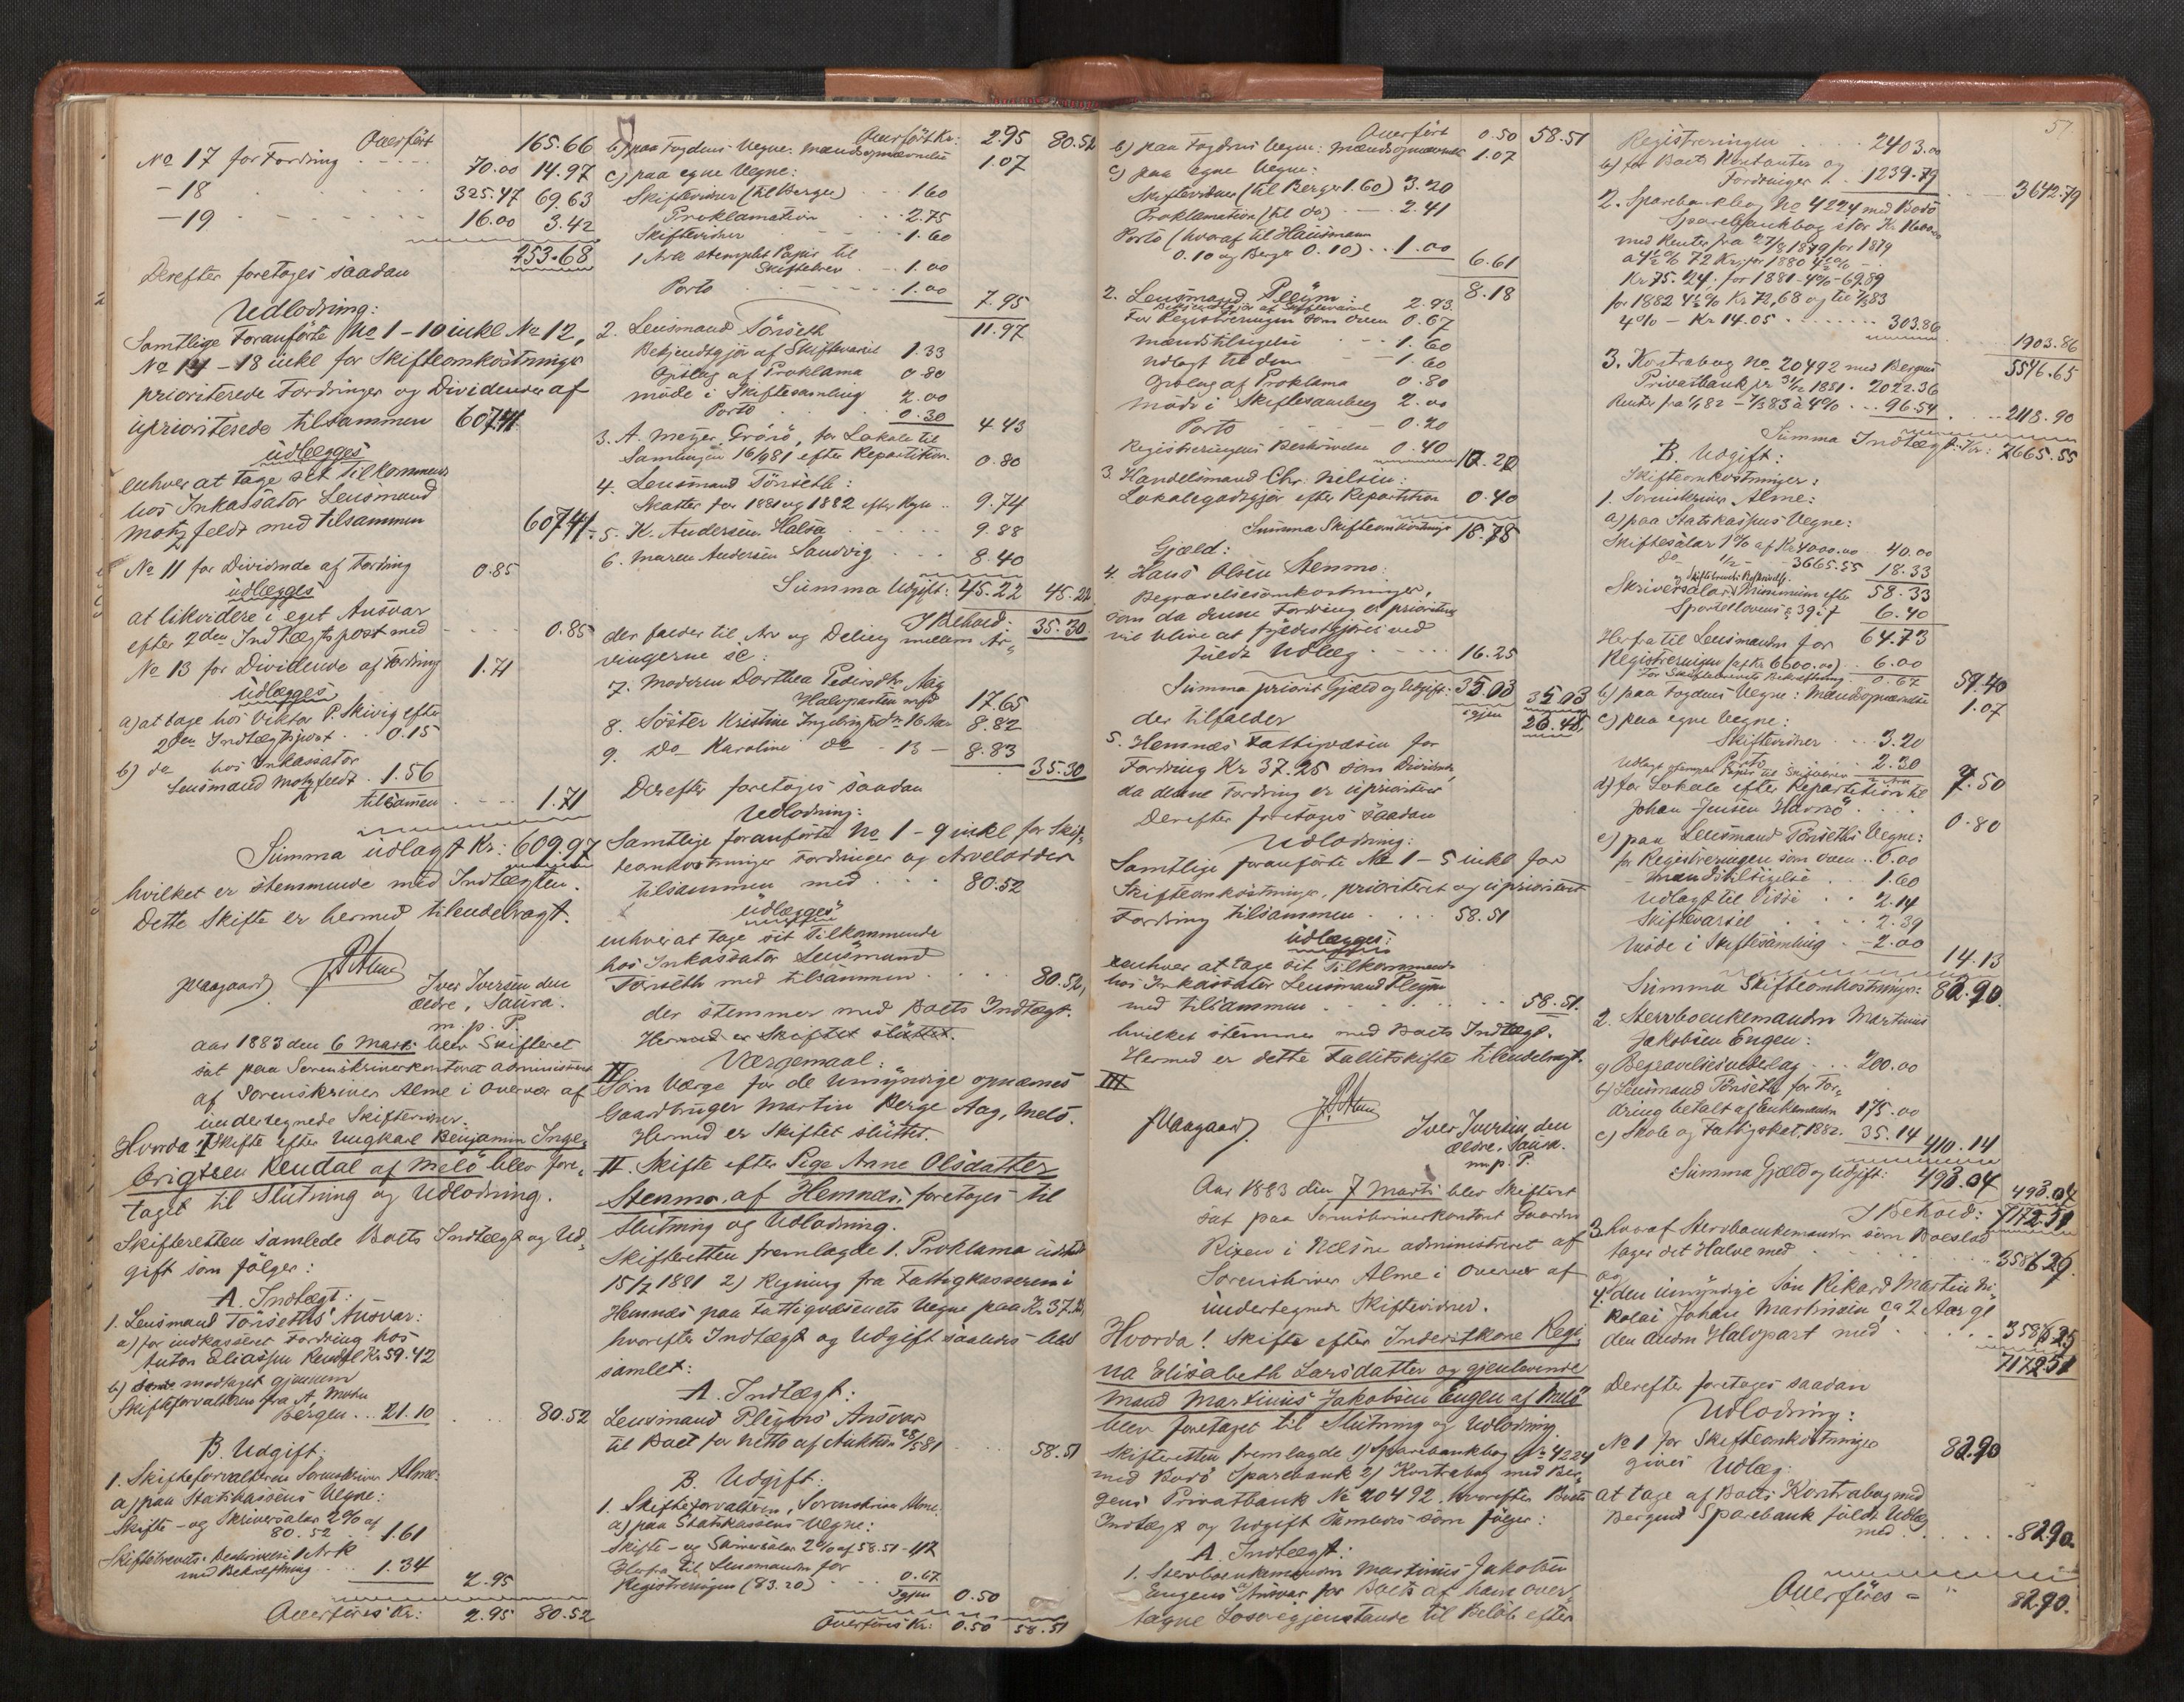 Overført 165.66
No 17 for Fordring 70.00 14.97
- 18 325.47 69.63
- 19 16.00 3.42
253.68
Derefter foretages saadan
Udlodning:
Samtlige Foranførte No 1 - 10 inkl No 12,
No 14 - 18 inkl for Skifteomkostninger
prioriterede Fordringer og Dividender af
uprioriterede tilsammen 607.41
udlægges
enhver at tage sit Tilkommende
hos Inkassator Lensmand
Motzfeldt med tilsammen 607.41
No 11 for Dividende af Fordring 0.85
udlægges
at likvidere i eget Ansvar
efter 2den Indtægtspost med 0.85
No 13 for Dividende af Fordring 1.71
udlægges
a) at tage hos Viktor P. Skivig efter
2den Indtægtspost 0.15
b) do hos Inkassator
Lensmand Motzfeldt 1.56
tilsamen 1.71
Summa udlagt Kr: 609.97
hvilket er stemmende med Indtægten.
Dette Skifte er hermed tilendebragt.
Iver Iversen den
ældre, Saura.
m. p. P.
Aar 1883 den 6 Marts blev Skifteret
sat paa Sorenskriverkontoret administreret
af Sorenskriver Alme i Overvær af
undertegnede Skiftevidner.
Hvorda I Skifte efter Ungkarl Benjamin Inge-
brigtsen Rendal af Melø blev fore-
taget til Slutning og Udlodning.
Skifteretten samlede Boets Indtægt og Ud-
gift som følger:
A. Indtægt:
1. Lensmand Tønseths Ansvar:
a) for indkasseret Fordring hos
Anton Eliassen Rendal Kr 59.42
b) modtaget gjennem
Skifteforvalteren fra A. Mohn
Bergen .. 21.10 80.52
B. Udgift:
1. Skifteforvalteren Sorenskriver Alme:
a) paa Statskassens Vegne:
Skifte- og Skriversalær 2% af
80.52 1.61
Skiftebrevets Beskrivelse 1 Ark
med Bekræftning 1.34
2.95
Overføres Kr: 2.95 80.52
Overført Kr: 2.95 80.52
b) paa Fogdens Vegne: Mændsopnævnelse 1.07
c) paa egne Vegne:
Skiftevidner (til Berger) 1.60
Proklamation 2.75
Skiftevidner 1.60
1 Ark stemplet Papir til
Skiftebrev 1.00
Porto 1.00
7.95
11.97
2. Lensmand Tønseth
Bekjendtgjør af Skiftevarsel 1.33
Opslag af Proklama 0.80
Møde i Skiftesamling 2.00
Porto 0.30
4.43
3. A. Meyer, Grønø, for Lokale til
Samlingen 16/9 81 efter Repartition 0.80
4. Lensmand Tönseth:
Skatter for 1881 og 1882 efter Regn .. 9.74
5. K. Andersen Halsa 9.88
6. Maren Andersen Sandvig 8.40
Summa Udgift: 45.22 45.22
I Behold: 35.30
der falder til Arv og Deling mellem Ar-
vingerne se:
7. Moderen Dorthea Pedersdtr Aag
Halvparten med 17.65
8. Søster Kristine Ingebrigtsdtr 16 Aar 8.82
9. Do Karoline do - 13 - 8.83
35.30
Derefter foretages saadan
Udlodning:
Samtlige foranførte No 1 - 9 inkl for Skif-
teomkostninger Fordringer og Arvelodder
tilsammen med 80.52
udlægges
enhver at tage sit Tilkommende
hos Inkassator Lensmand
Tønseth med tilsammen 80.52,
der stemmer med Boets Indtægt.
Hermed er Skiftet sluttet.
Værgemaal:
Som Værge for de Umyndige opnævnes
Gaardbruger Martin Berge Aag, Melø.
Hermed er Skiftet sluttet.
II. Skifte efter Pige Anne Olsdatter
Stenmo, af Hemnæs, foretages til
Slutning og Udlodning.
Skifteretten fremlagde 1. Proklama udstedt
15/7 1881 2) Regning fra Fattigkasserer i
Hemnæs paa Fattigvæsenets Vegne paa Kr 37.25
hvorefter Indtægt og Udgift saaledes blev
samlet:
A. Indtægt:
Lensmand Pleyms Ansvar
til Boet for Netto af Auktion 28/5 81 58.51
B. Udgift:
1. Skifteforvalteren, Sorenskriver Alme
a) paa Statskassens Vegne:
Skifte- og Skriversalær 2% af 58.51 - 1.17
Herfra til Lensmanden for
Registreringen (83.20) 0.67
igjen 0.50
Overføres Kr: 0.50 58.51
Overført 0.50 58.51
b) paa Fogdens Vegne: Mændsopnævnelse 1.07
c) paa egne Vegne:
Skiftevidner (til Berger 1.60) 3.20
Proklamation (til do) 2.41
Porto (hvoraf til Hausmann
0.10 og Berger 0.10) .. 1.00
6.61
8.18
2. Lensmand Pleym:
Bekjendtgjør af Skiftevarsel 2.93
For Registreringen som oven 0.67
Mændstilsigelse 1.60
Udlagt til dem 1.60
Opslag af Proklama 0.80
Møde i Skiftesamling 2.00
Porto 0.20
Registreringens Beskrivelse 0.40
10.20
3. Handelsmand Chr. Nilsen:
Lokalegodtgjør efter Repartition 0.40
Summa Skifteomkostninger 18.78
Gjæld:
4. Hans Olsen Stenmo:
Begravelsesomkostninger,
som da denne Fordring er prioriteret
vil blive at fyldestgjøres ved
fuldt Udlæg 16.25
Summa priorit Gjæld og Udgift: 35.03 35.03
der tilfalder igjen 26.48,
5. Hemnæs Fattigvæsen for
Fordring Kr 37.25 som Dividende,
da denne Fordring er uprioriteret
Derefter foretages saadan
Udlodning:
Samtlige foranførte No 1 - 5 inkl for
Skifteomkostninger, prioriteret og uprioriteret
Fordring tilsammen 58.51
udlægges:
enhver at tage sit Tilkommende
hos Inkassator Lensmand Pleym
med tilsammen 58.51.
hvilket stemmer med Boets Indtægt.
Hermed er dette Fallitskifte tilendebragt.
III
Iver Iversen den
ældre, Saura.
m. p. P.
Aar 1883 den 7 Marts blev Skifteret
sat paa Sorenskriverkontoret Gaarden
Risen i Nesne administreret af
Sorenskriver Alme i Overvær af
undertegnede Skiftevidner.
Hvorda! Skifte efter Inderstkone Regi-
na Elisabeth Larsdatter og gjenlevende
Mand Martinus Jakobsen Engen af Melø
blev foretaget til Slutning og Udlodning.
Skifteretten fremlagde 1) Sparebankbog No 4224
med Bodø Sparebank 2) Kontrabog med Ber-
gens Privatbank No 20492. hvorefter Boets
Indtægt og Udgift samledes som følger:
A. Indtægt:
1. Stervboenkemanden Martinus Jakobsen
Engens Ansvar for Boets af ham over-
tagne Løsøregjenstande til Beløb efter
57
Registreringen 2403.00
b) for Boets Kontanter og
Fordringer 1239.79
3642.79
2. Sparebankbog No 4224 med Bodø
Sparebank stor Kr 1600.00
med Renter fra 27/8 1879 for 1879
a 4½% 72 Kr, for 1880 4½%
Kr 75.24, for 1881 - 4% - 69.89
for 1882 4½% Kr 72,68 og til 1/3 83
4% - Kr 14.05 303.86
1903.86
5546.65
3. Kontrabog No 20492 med Bergens
Privatbank pr 31/12 1881. 2022.36
Renter fra 1/1 82 - 1/3 83 à 4% 96.54
2118.90
Summa Indtægt: Kr: 7665.55
B. Udgift:
Skifteomkostninger:
1. Sorenskriver Alme:
a) paa Statskassens Vegne:
Skiftesalær 1% af Kr 4000.00 40.00
do ½ - 3665.55 18.33
58.33
Skriversalær Minimum efter
Sportellovens § 39 i f 6.40
64.73
Herfra til Lensmanden for
Registreringen (af Kr 6000.00) 6.00
For Skiftebrevets Bekræftning 0.67
59.40
b) paa Fogdens Vegne: Mændsopnævnelse 1.07
c) paa egne Vegne:
Skiftevidner 3.20
Porto 2.30
Udlagt stemplet Papir til Skiftebrev
7.50
d) for Lokale efter Repartition til
Johan Jensen Havnø 0.80
e) paa Lensmand Tönseths Vegne:
for Registreringen som oven .. 6.00
Mændstilsigelse 1.60
Udlagt til Disse 2.14
Skiftevarsel 2.39
Møde i Skiftesamling 2.00
14.13
Summa Skifteomkostninger: 82.90.
2. Stervboenkemanden Martinus
Jakobsen Engen:
a) Begravelsesudlæg 200.00
b) Lensmand Tönseth, for For-
dring betalt af Enkemanden 175.00
c) Skole og Fattigskat, 1882. 35.14 410.14
Summa Gjæld og Udgift: 493.04 493.04
I Behold: 7172.51
3. hvoraf Stervboenkemanden som Boeslod
tager det Halve med 3586.26.
og
4. den umyndige Søn Rikard Martin Ni-
kolai Johan Martinsen, ca 2 Aar gl
den anden Halvpart med 3586.25
7172.51
Derefter foretages saadan
Udlodning:
No 1 for Skifteomkostninger 82.90
gives Udlæg:
at tage af Boets Kontrabog med
Bergens Sparebank fuldt Udlæg
med 82.90.
Overføres - " 82.90.